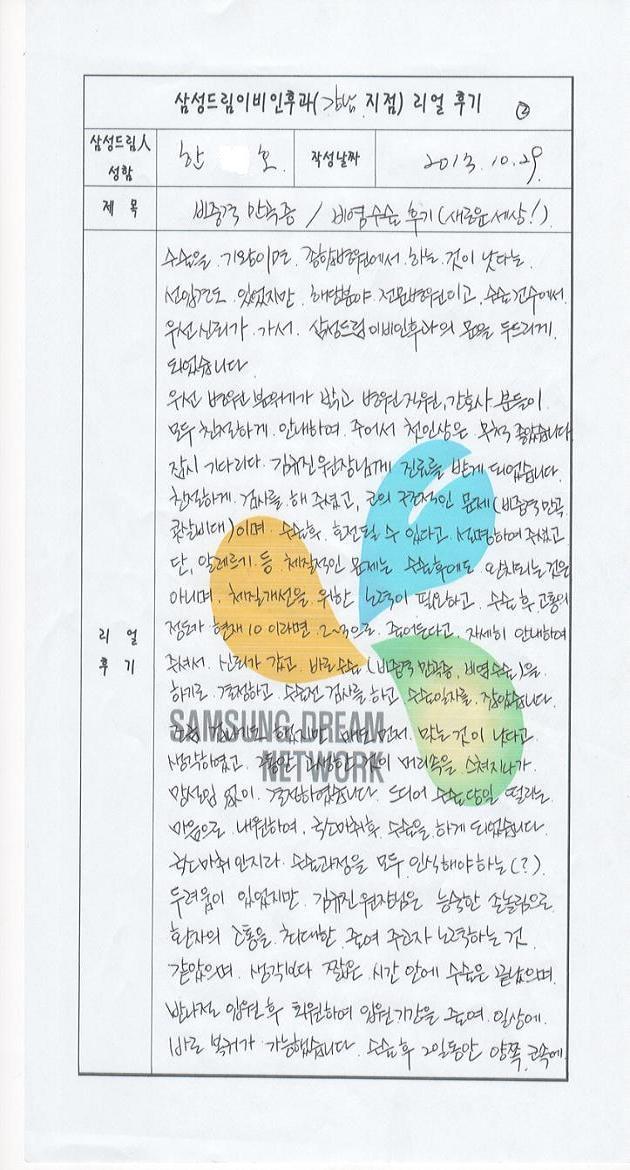 삼성드림이비인후과(강남 지점) 리얼 후기 ②
삼성드림人 성함 한 호 작성날짜 2013. 10. 29
제 목 비중격 만곡증 / 비염수술 후기 (새로운 세상!)
리 얼 후 기
수술을 기왕이면 종합병원에서 하는 것이 낫다는
선입견도 있었지만 해당분야 전문병원이고, 수술건수에서
우선신뢰가 가서 삼성드림이비인후과의 문을 두드리게
되었습니다
우선 병원 분위기가 밝고 병원직원, 간호사 분들이
모두 친절하게 안내하여 주어서 첫인상은 무척 좋았습니다
잠시 기다리다 김유진원장님께 진료를 받게 되었습니다.
친절하게 검사를 해 주셨고, 코의 구조적인 문제(비중격만곡,
콧살비대)이며 수술후 호전될 수 있다고 설명하여주셨고
단, 알레르기 등 체질적인 문제는 수술후에도 완치되는것은
아니며, 체질개선을 위한 노력이 필요하고 수술후 고통의
정도가 현재 10 이라면 2~3으로 줄어든다고, 자세히 안내하여
주셔서 신뢰가 갔고 바로수술(비중격 만곡증, 비염수술)을
하기로 결정하고 수술전 검사를 하고 수술일자를 잡았습니다.
했지만 매도 먼저 맞는것이 낫다고
생각하였고 그동안 고생한 것이 머리속을 스쳐지나가
망설임 없이 결정하였습니다 드디어 수술당일 떨리는
마음으로 내원하여, 국소마취후 수술을 하게 되었습니다.
국소마취인지라 수술과정을 모두 인식해야하는(?)
두려움이 있었지만 김유진원장님은 능숙한 손놀림으로
환자의 고통을 최대한 줄여 주고자 노력하는 것
같았으며 생각보다 짧은 시간 안에 수술은 끝났으며
반나절 입원후 퇴원하여 입원기간을 줄여 일상에
바로 복귀가 가능했습니다 수술후 2일동안 양쪽 코속에
SAMSUNG DREAM
NETWORK